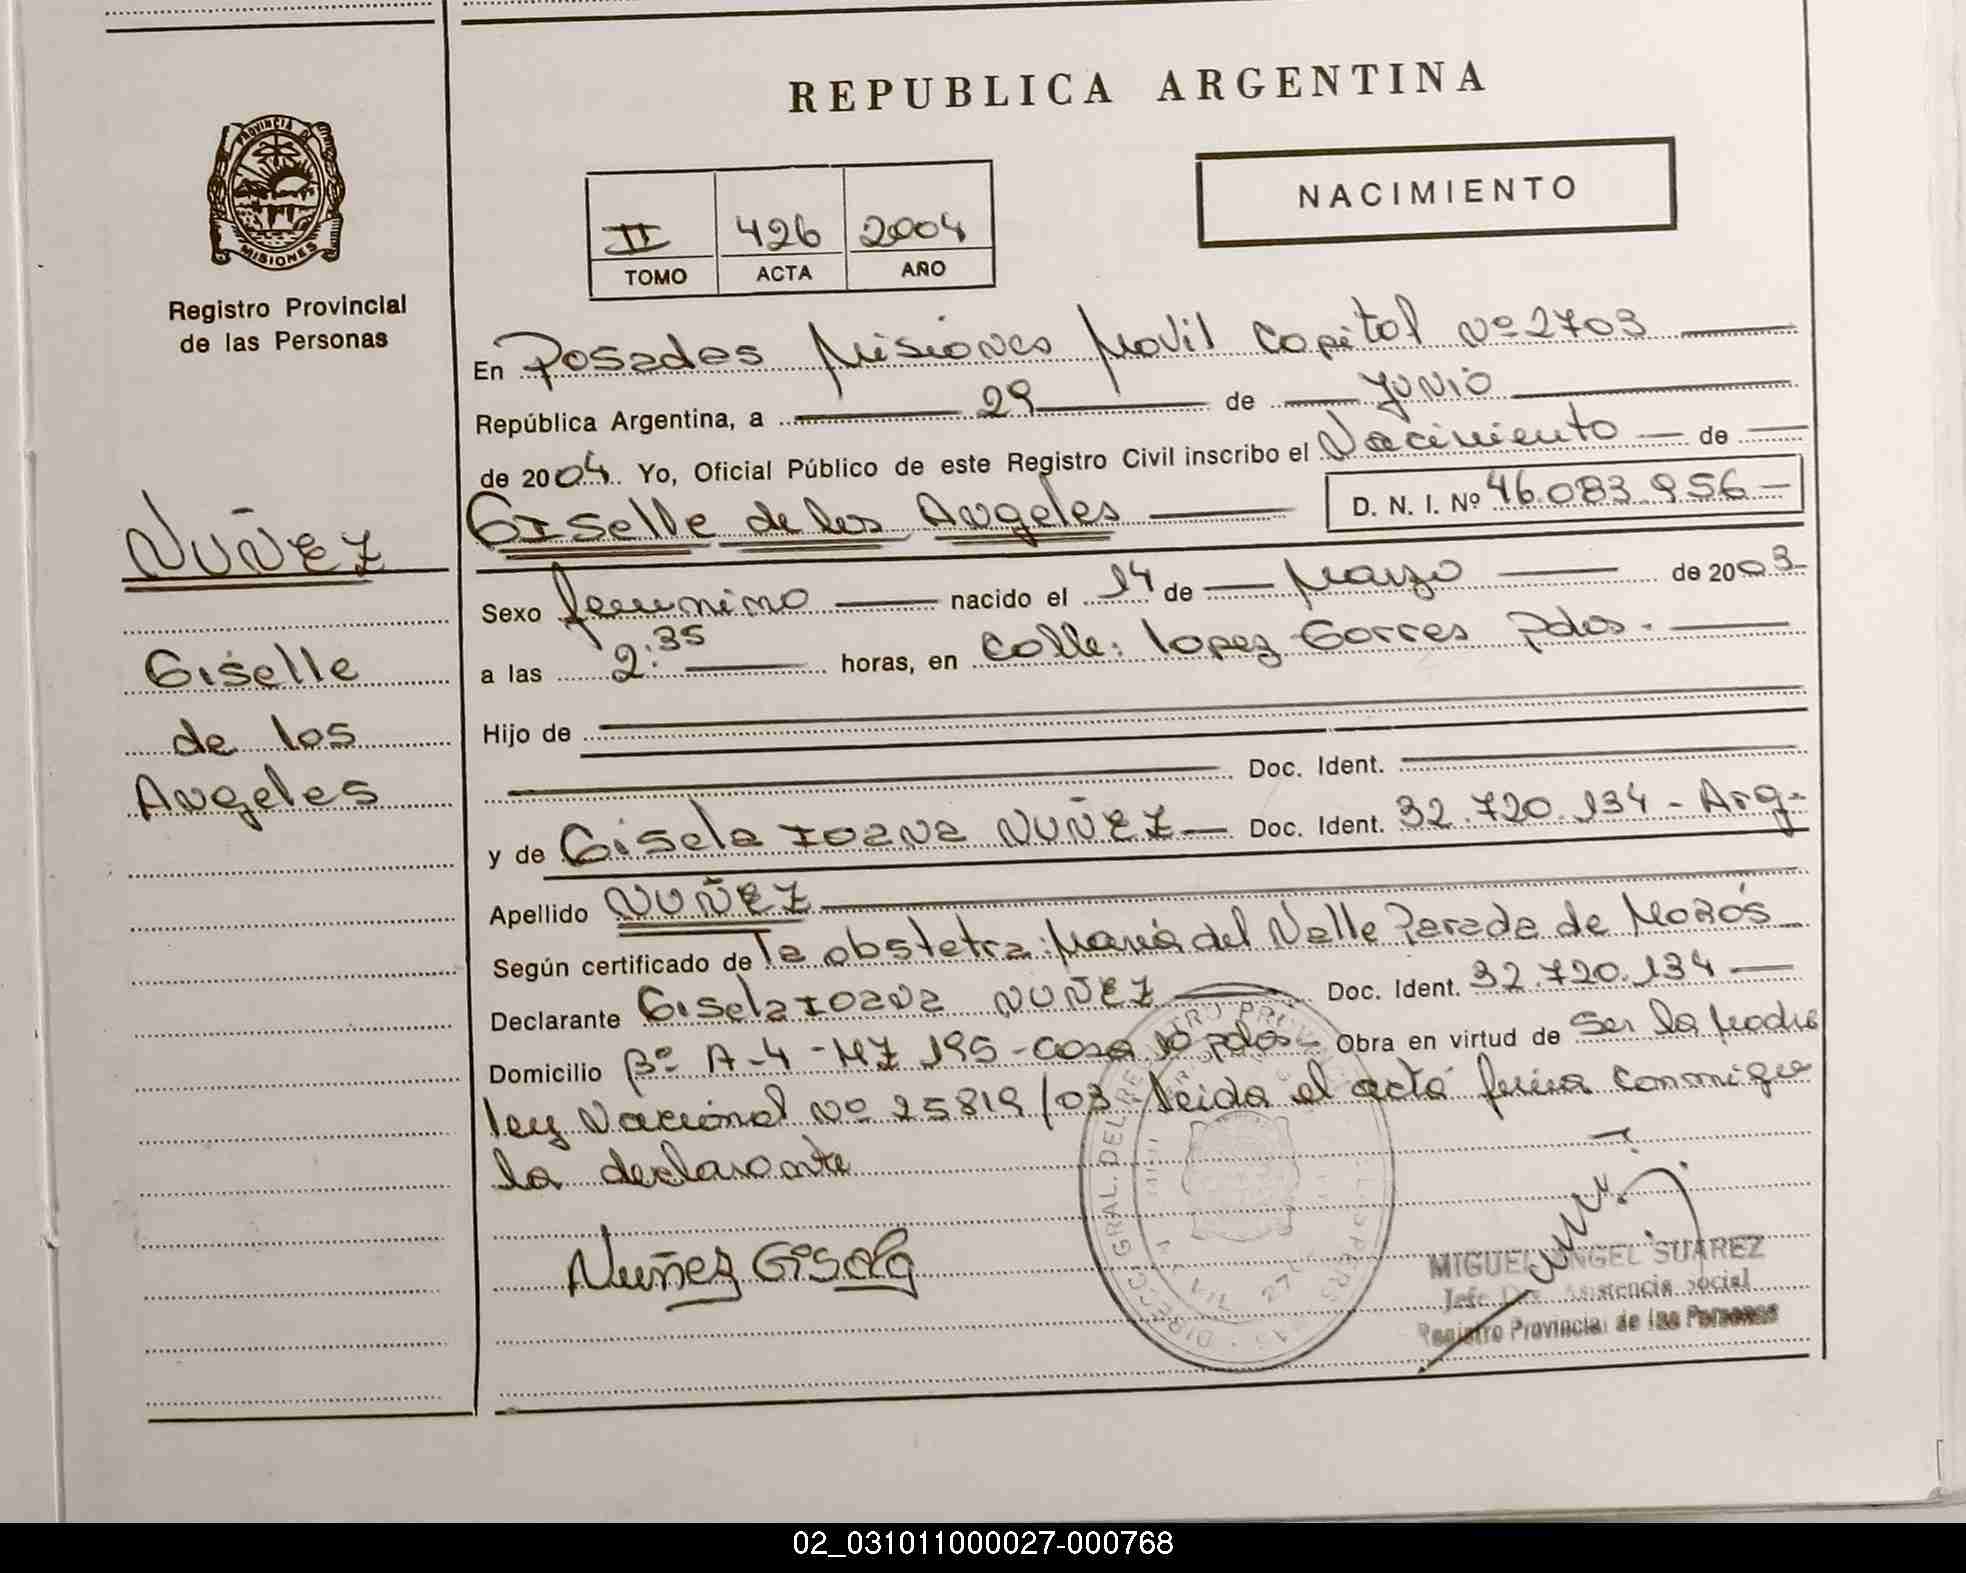 REPUBLICA ARGENTINA
PROVINCIA DE
MISIONES
Registro Provincial
de las Personas
NACIMIENTO
II 426 2004
TOMO ACTA AÑO
En Posadas Misiones Movil Capital Nº 2703
República Argentina, a 29 de Junio
de 2004. Yo, Oficial Público de este Registro Civil inscribo el Nacimiento de
Giselle de los Angeles D. N. I. Nº 46.083.956
NUÑEZ
Giselle
de los
Angeles
Sexo femenino nacido el 14 de Marzo de 2003
a las 2:35 horas, en Calle: Lopez Torres Pdas.
Hijo de
Doc. Ident.
y de Gisela Ioana NUÑEZ Doc. Ident. 32.720.134 - Arg-
Apellido NUÑEZ
Según certificado de la obstetra: María del Valle Parada de
Declarante Gisela Ioana NUÑEZ Doc. Ident. 32.720.134
Domicilio Bº A-4 - MZ 195 - casa 10 pdas - Obra en virtud de ser la Madre
ley Nacional Nº 25819/03 - leida el acta firma conmigo
la declarante
Nuñez Gisela
MIGUEL ANGEL SUAREZ
Jefe Asistencia Social
Registro Provincial de las Personas
02_031011000027-000768